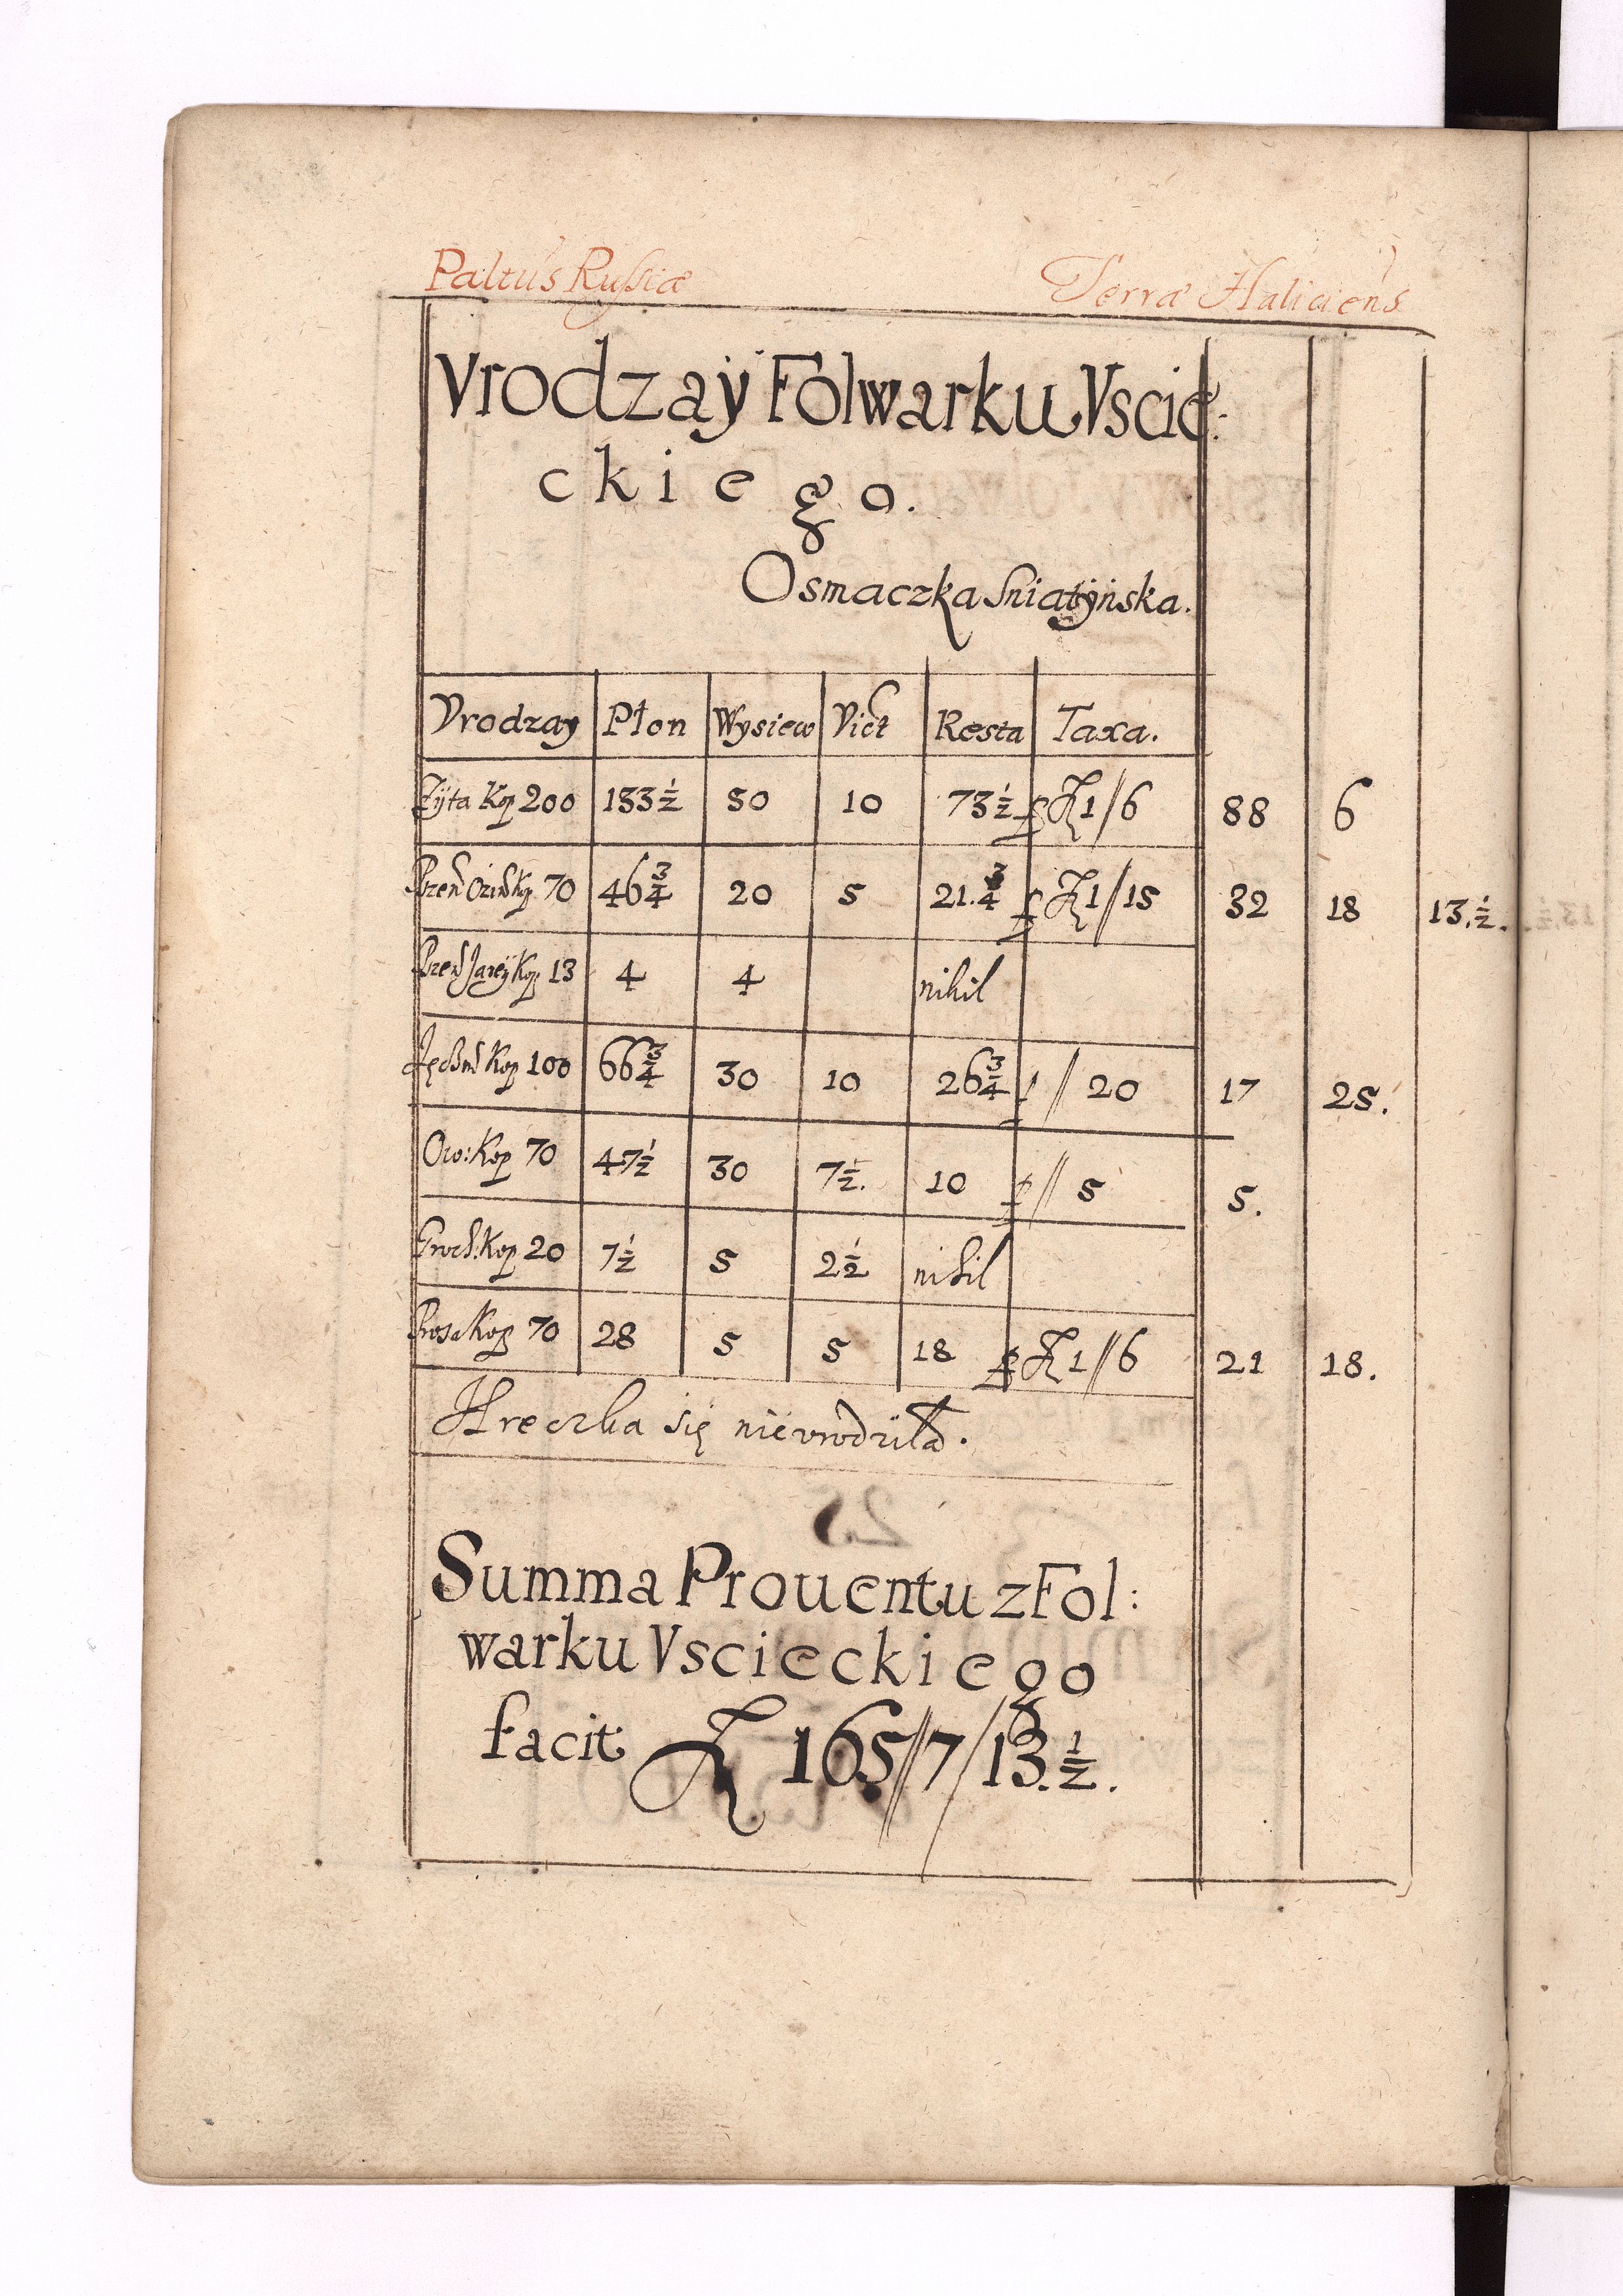 Paltus Russiæ Terræ Haliciens
Vrodzaÿ Folwarku Vscie:
ckiego.
Osmaczka Sniatÿnska.
Vrodzay Płon Wysiew Vict Resta Taxa.
Zÿta Kop 200 133 1/2 50 10 73 1/2 p Zł 1//6 88 6
Pszen Ozim Kop 70 46 3/4 20 5 21. 3/4 p Zł 1//15 32 18 13. 1/2.
Pszen Jareÿ Kop 13 4 4 nihil
Jęczm Kop 100 66 3/4 30 10 26 3/4 p // 20 17 25.
Ow: Kop 70 47 1/2 30 7 1/2. 10 p // 5 5.
Groch: Kop 20 7 1/2 5 2 1/2 nihil
Prosa Kop 70 28 5 5 18 p Zł 1//6 21 18.
Hreczka się nievrodziła.
Summa Prouentu z Fol:
warku Vscieckiego
facit Zł 165//7/13. 1/2.